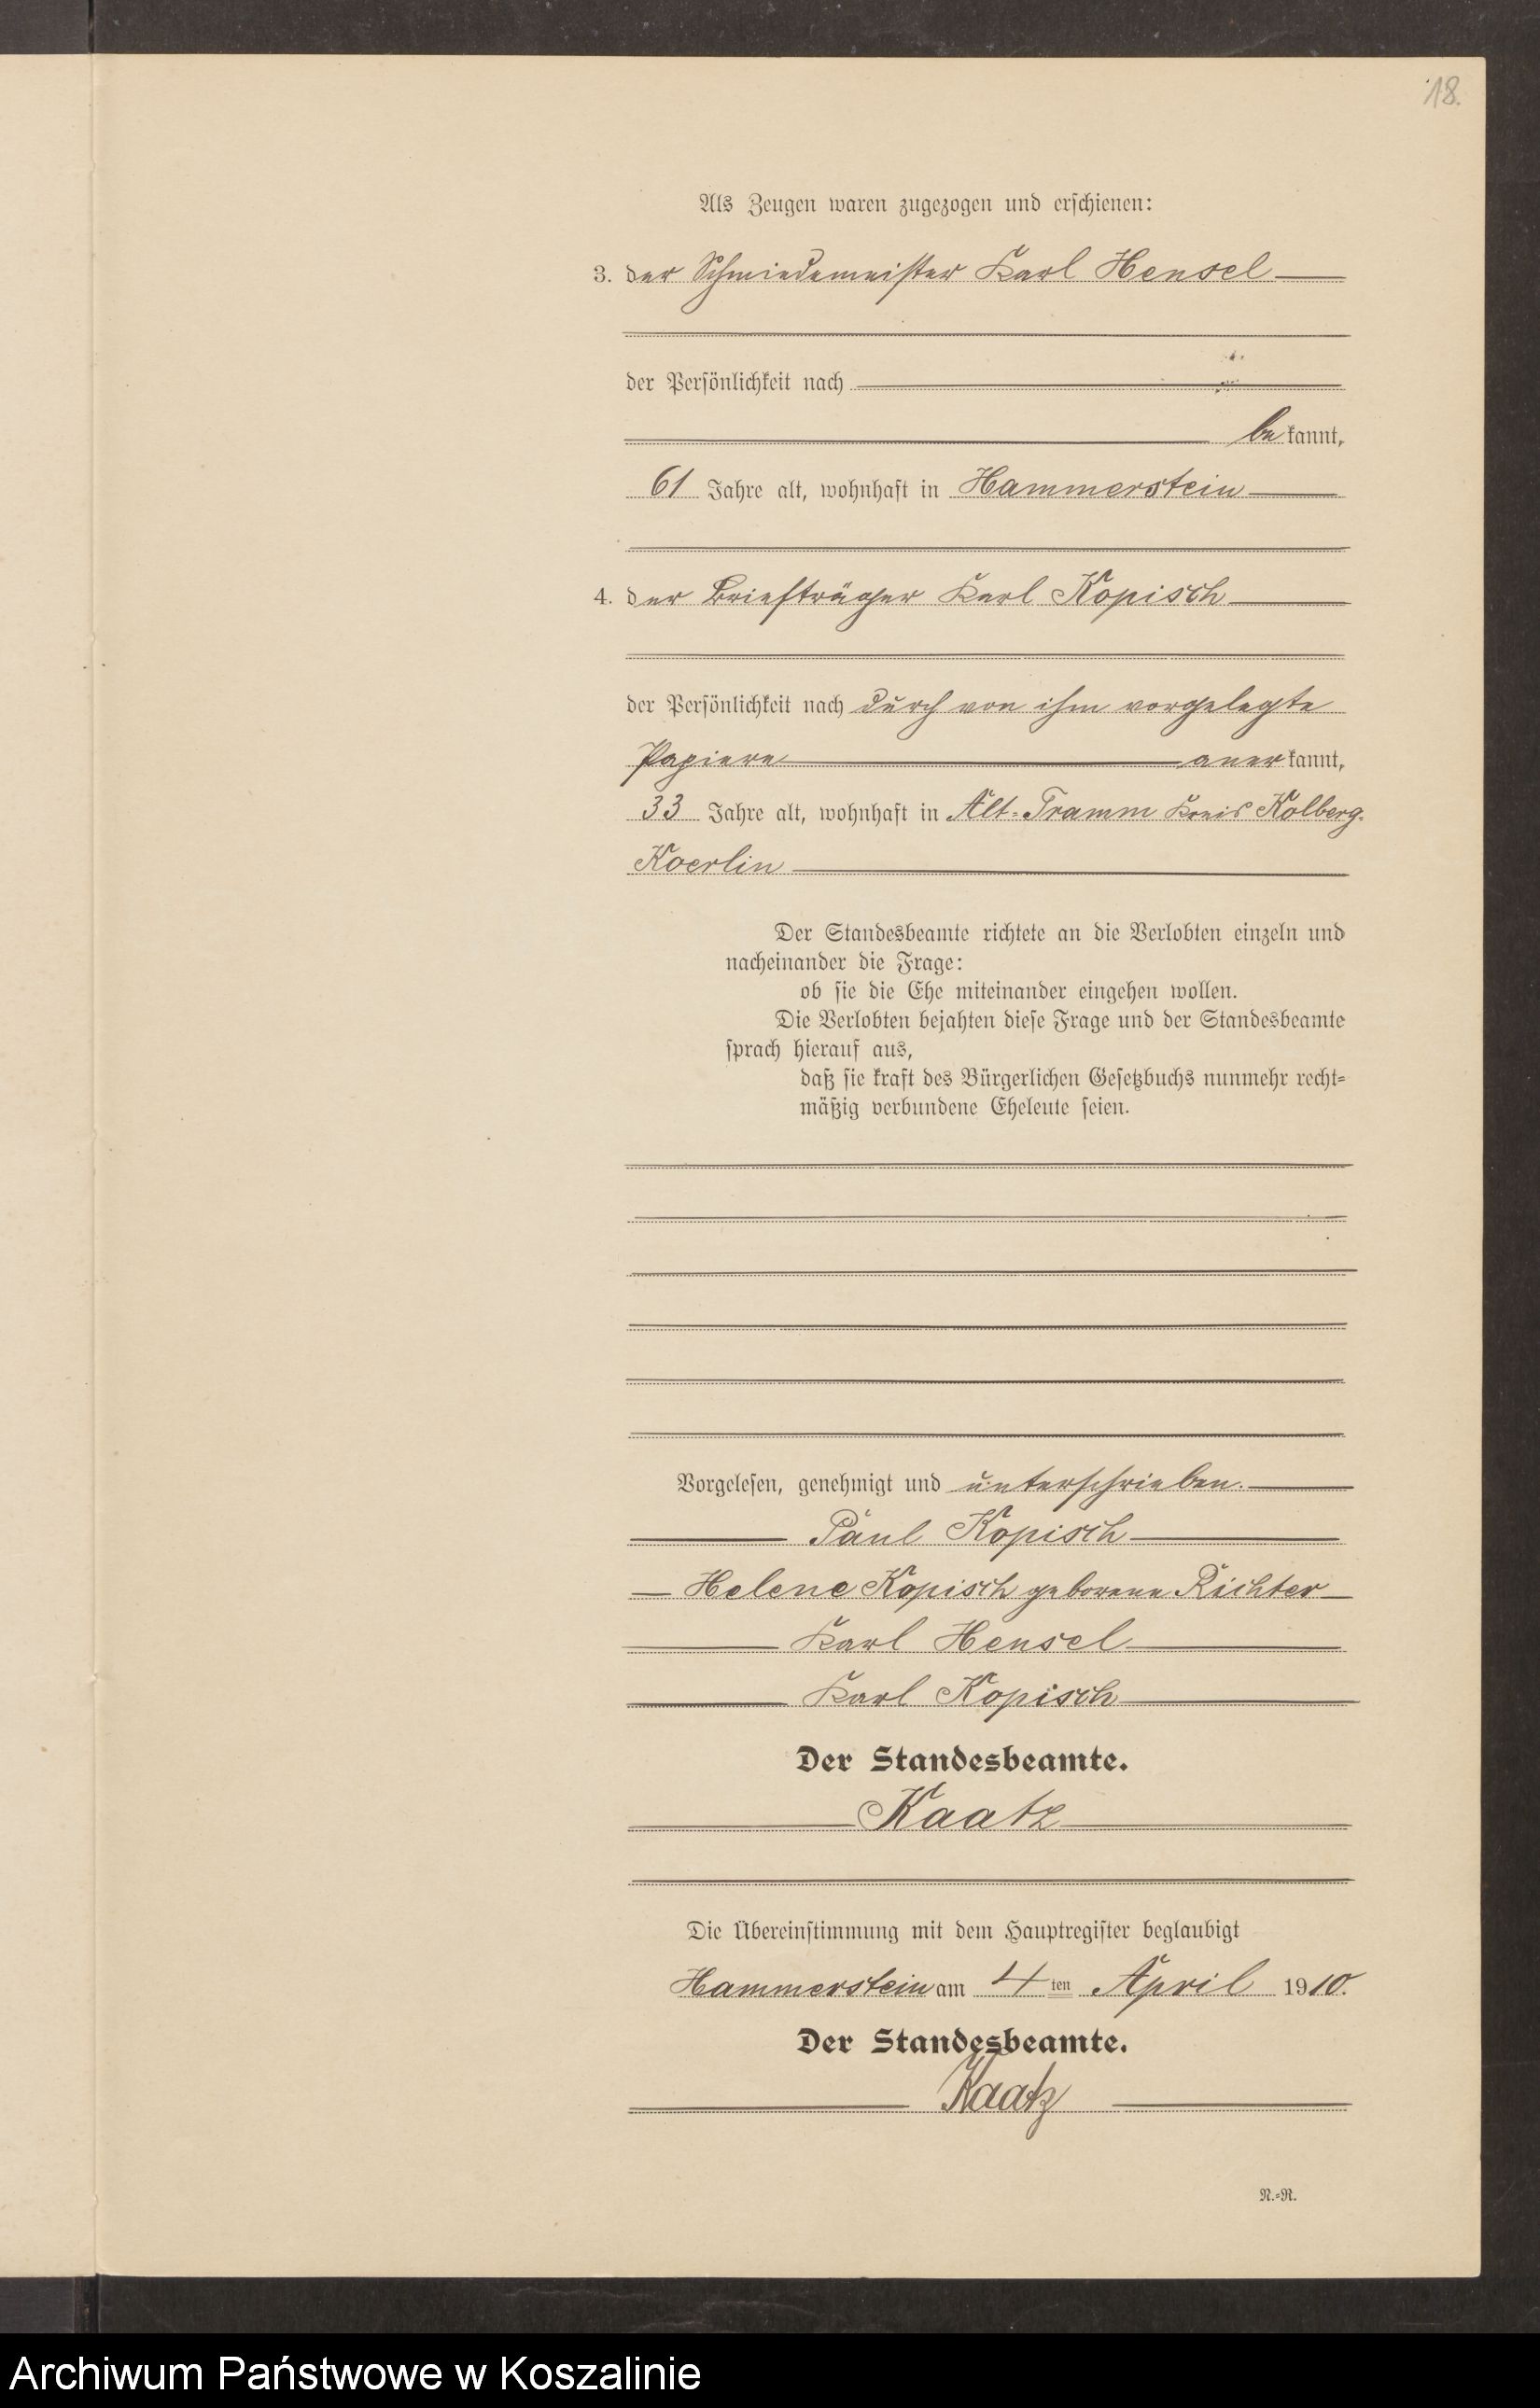 18.
Als Zeugen waren zugezogen und erschienen:
3. der Schmiedemeister Karl Hensel
der Persönlichkeit nach
be kannt,
61 Jahre alt, wohnhaft in Hammerstein
4. der Briefträger Karl Kopisch
der Persönlichkeit nach durch von ihm vorgelegte
Papiere aner kannt,
33 Jahre alt, wohnhaft in Alt-Tramm Kreis Kolberg-
Koerlin
Der Standesbeamte richtete an die Verlobten einzeln und
nacheinander die Frage:
ob sie die Ehe miteinander eingehen wollen.
Die Verlobten bejahten diese Frage und der Standesbeamte
sprach hierauf aus,
daß sie kraft des Bürgerlichen Gesetzbuchs nunmehr recht-
mäßig verbundene Eheleute seien.
Vorgelesen, genehmigt und unterschrieben.
Paul Kopisch
Helene Kopisch geborene Richter
Karl Hensel
Karl Kopisch
Der Standesbeamte.
Kaatz
Die Übereinstimmung mit dem Hauptregister beglaubigt
Hammerstein am 4ten April 1910.
Der Standesbeamte.
Kaatz
N.-R.
Archiwum Państwowe w Koszalinie